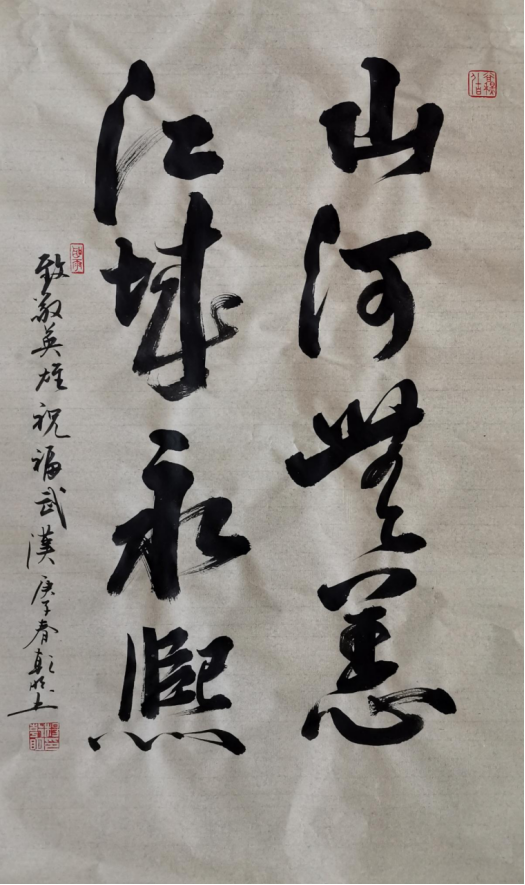 山河無恙
江城永熙
致敬英雄祝福武漢庚子春